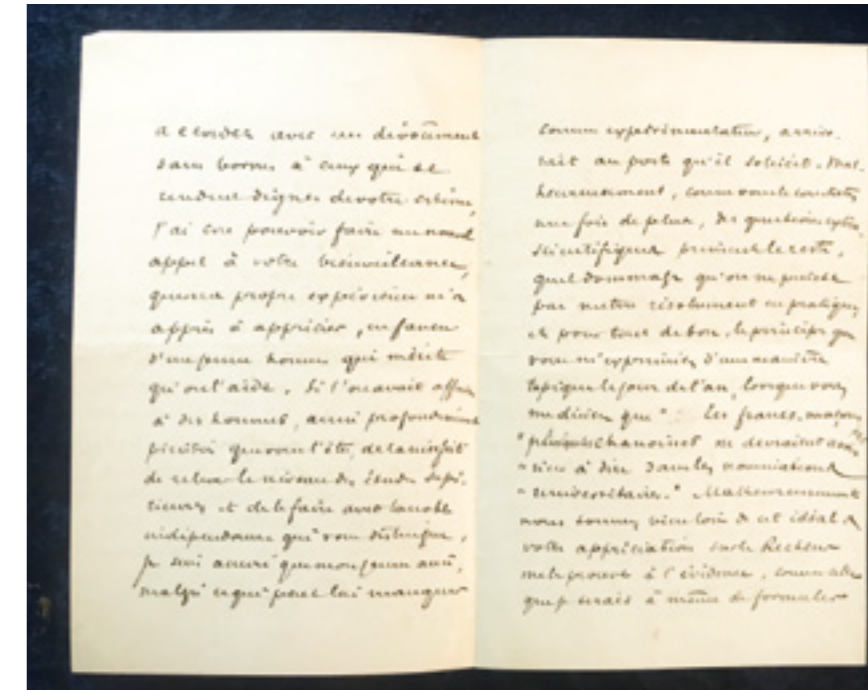 accorder avec un dévouement
sans bornes à ceux qui se
rendent dignes de votre estime,
j'ai cru pouvoir faire un nouvel
appel à votre bienveillance,
que ma propre expérience m'a
appris à apprécier, en faveur
d'un jeune homme qui mérite
qu'on l'aide. Si l'on avait affaire
à des hommes, aussi profondément
pénétrés que vous l'êtes, de la nécessité
de relever le niveau des études supé-
rieures et de le faire avec la noble
indépendance qui vous distingue,
je suis assuré que mon jeune ami,
malgré ce qui peut lui manquer
comme expérimentateur, arrive-
rait au poste qu'il sollicite. Mal-
heureusement, comme vous le constatez
une fois de plus, des questions extra-
scientifiques priment le reste,
quel dommage qu'on ne puisse
pas mettre résolument en pratique,
et pour tout de bon, le principe que
vous m'exprimiez d'une manière
typique le jour de l'an, lorsque vous
me disiez que " Les francs-maçons
" chanoines ne devraient
" rien à dire dans les nominations
" universitaires." Malheureusement
nous sommes bien loin de cet idéal &
votre appréciation sur le Recteur
me le prouve à l'évidence, comme celle
que je serais à même de formuler